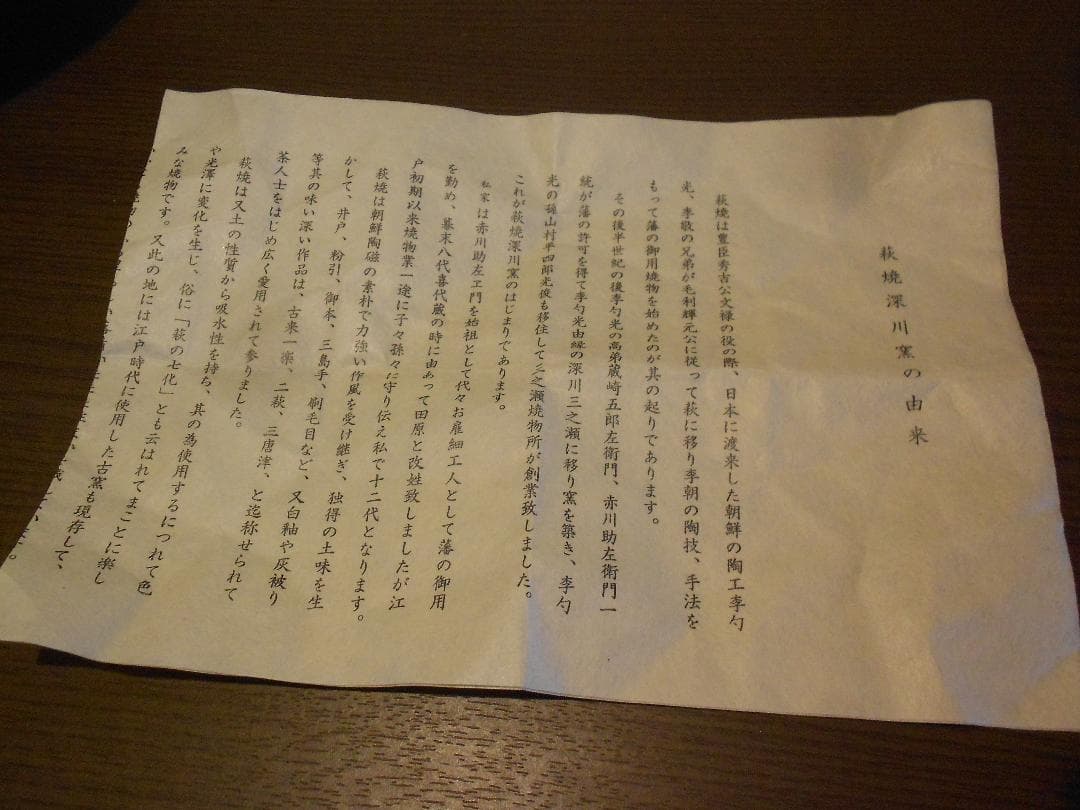 萩焼深川窯の由来
萩焼は豊臣秀吉公文禄の役の際、日本に渡来した朝鮮の陶工李勺
光、李敬の兄弟が毛利輝元公に従って萩に移り李朝の陶技、手法を
もって藩の御用焼物を始めたのが其の起りであります。
その後半世紀の後李勺光の高弟蔵崎五郎左衛門、赤川助左衛門一
統が藩の許可を得て李勺光由縁の深川三之瀬に移り窯を築き、李勺
光の孫山村平四郎光俊も移住して三之瀬焼物所が創業致しました。
これが萩焼深川窯のはじまりであります。
私家は赤川助左エ門を始祖として代々お雇細工人として藩の御用
を勤め、幕末八代喜代蔵の時に由あって田原と改姓致しましたが江
戸初期以来焼物業一途に子々孫々に守り伝え私で十二代となります。
萩焼は朝鮮陶磁の素朴で力強い作風を受け継ぎ、独得の土味を生
かして、井戸、粉引、御本、三島手、刷毛目など、又白釉や灰被り
等其の味い深い作品は、古来一楽、二萩、三唐津、と迄称せられて
茶人士をはじめ広く愛用されて参りました。
萩焼は又土の性質から吸水性を持ち、其の為使用するにつれて色
や光澤に変化を生じ、俗に「萩の七化」とも云はれてまことに楽し
みな焼物です。又此の地には江戸時代に使用した古窯も現存して、